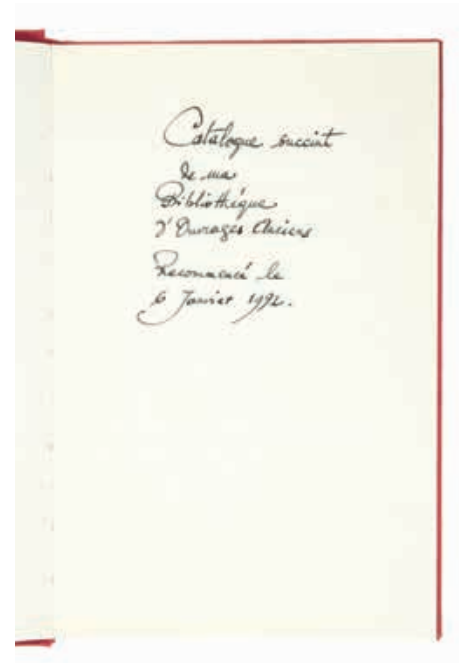 Catalogue succint
de ma
Bibliothèque
d'Ouvrages Anciens
Recommencé le
6 Janvier 1992.